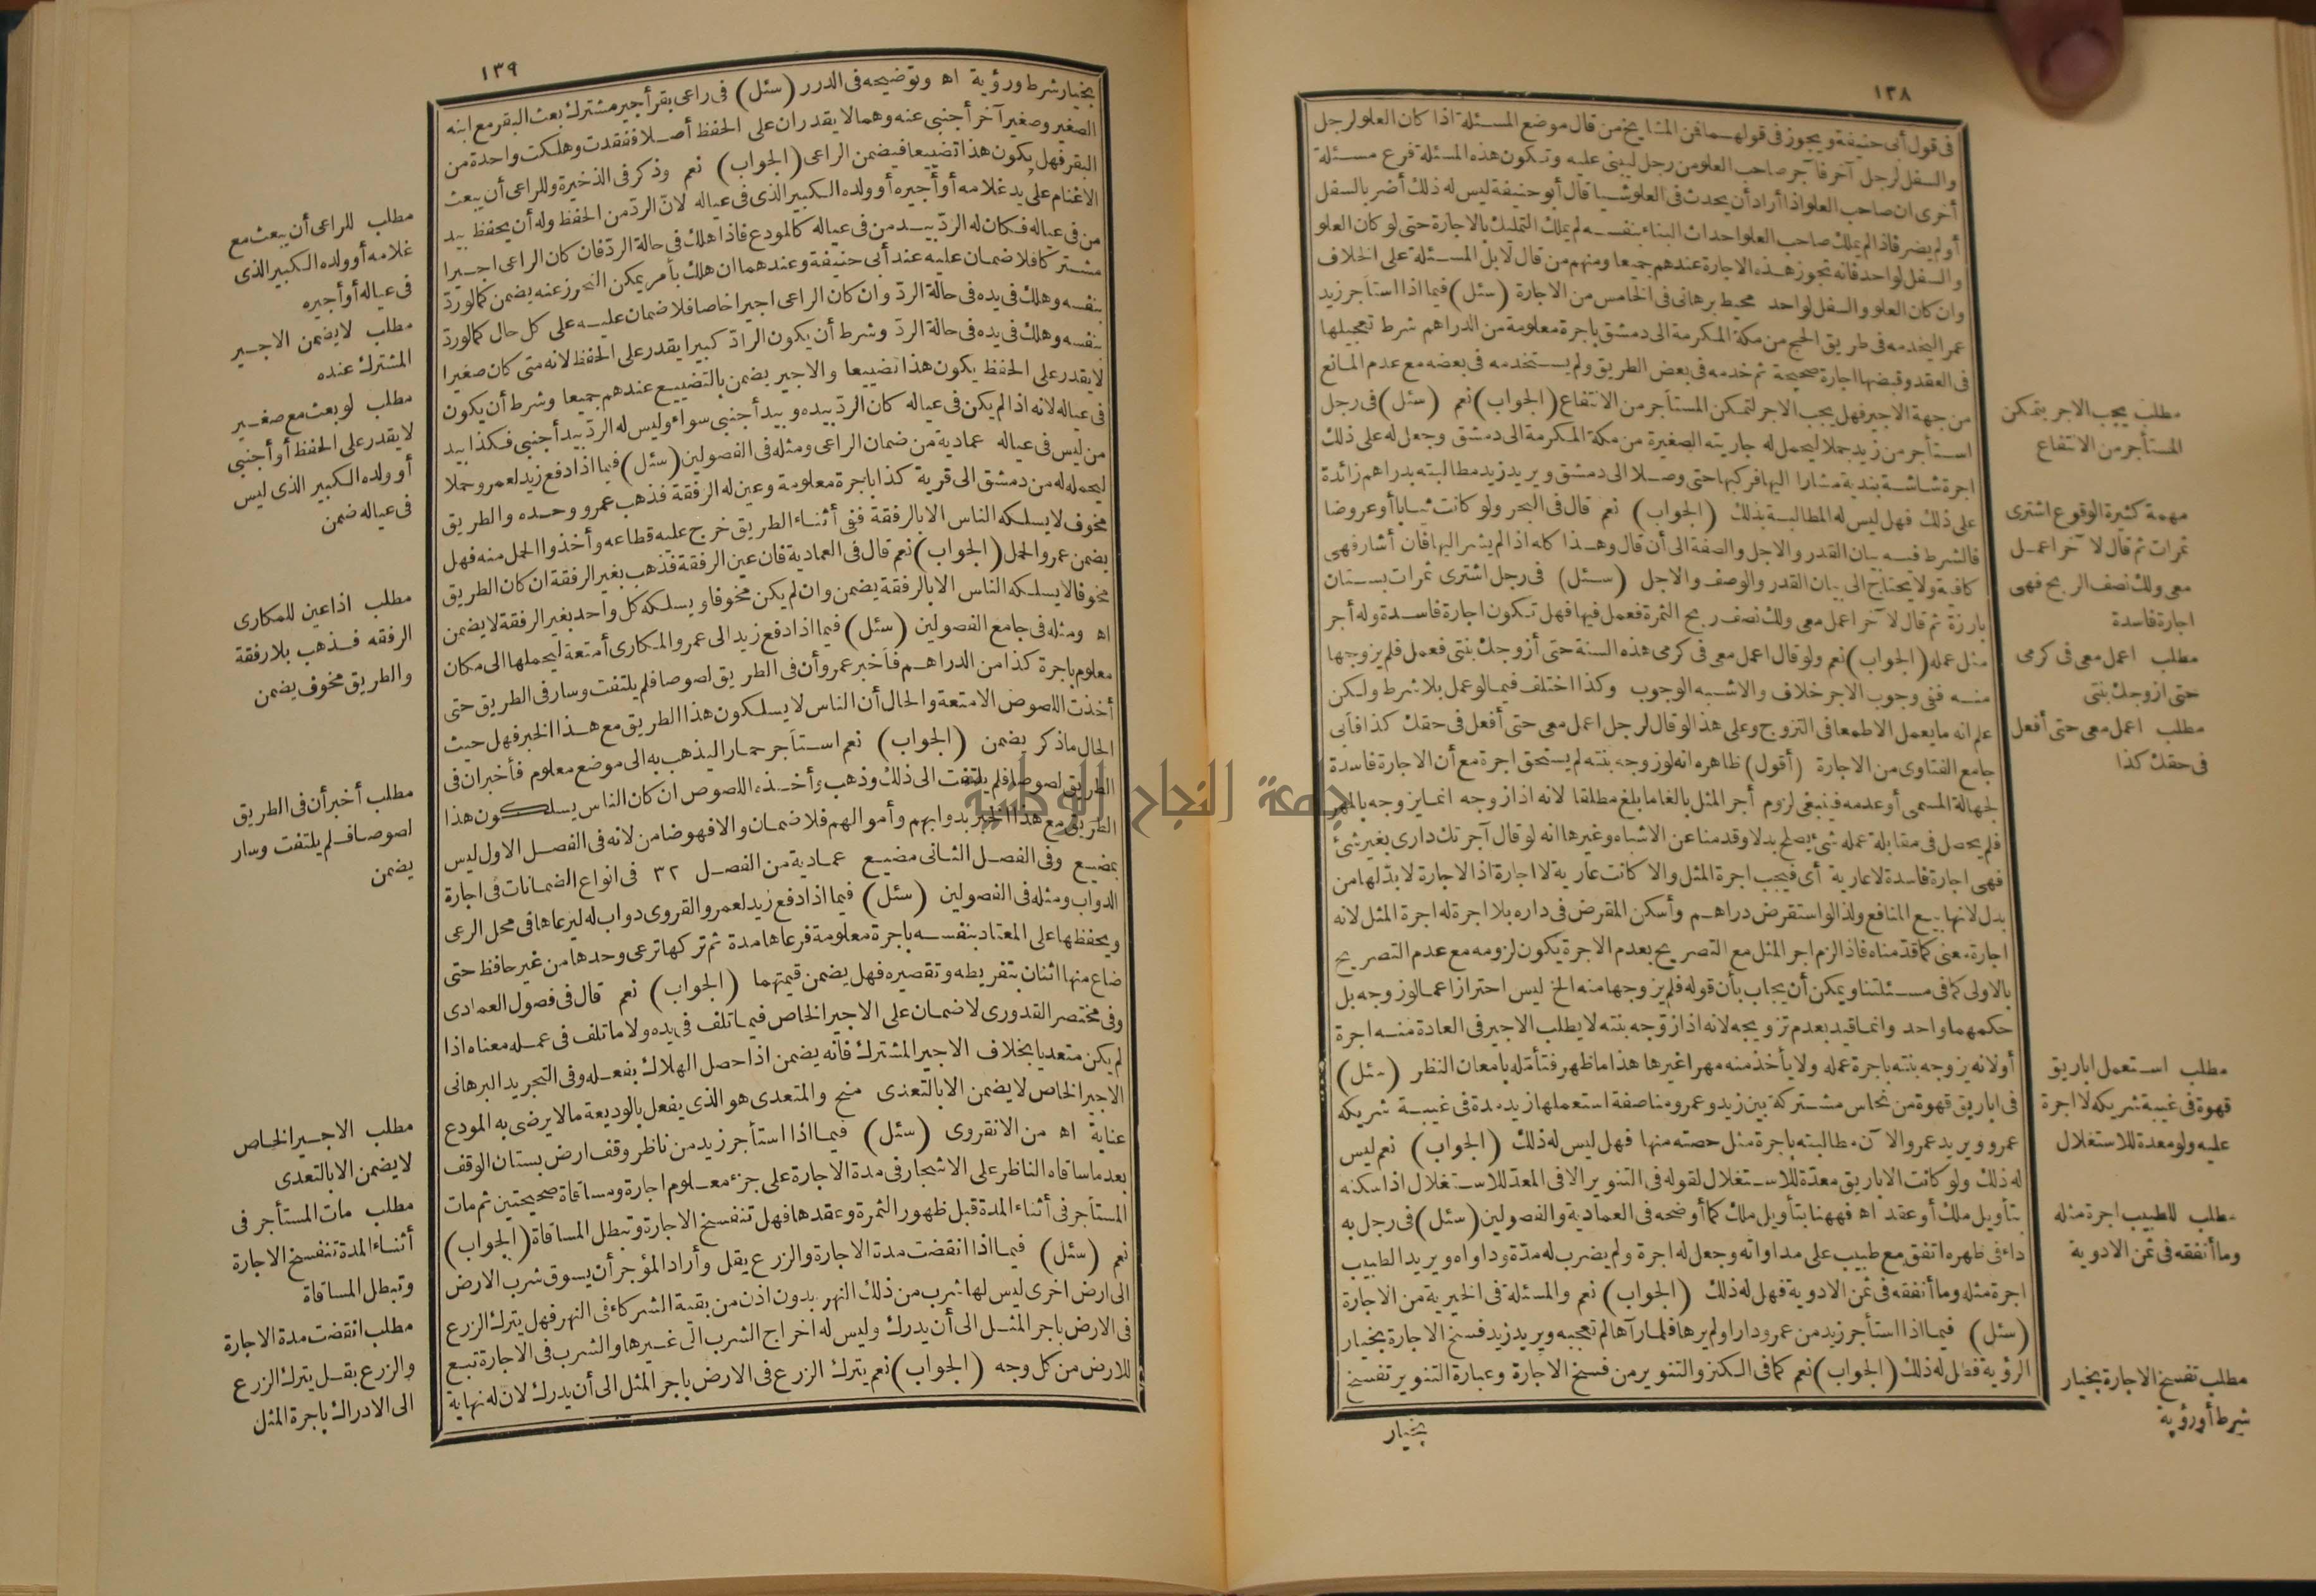 ١٣٨
فى قول أبى حنيفة ويجوز فى قولهما فمن المشايخ من قال موضع المسئلة اذا كان العلو لرجل
والسفل لرجل آخر فآجر صاحب العلو من رجل ليبنى عليه وتكون هذه المسئلة فرع مسئلة
أخرى ان صاحب العلو اذا أراد أن يحدث فى العلو شيأ قال أبو حنيفة ليس له ذلك أضر بالسفل
أو لم يضر فاذا لم يملك صاحب العلو احداث البناء بنفسه لم يملك التمليك بالاجارة حتى لو كان العلو
والسفل لواحد فانه تجوز هذه الاجارة عندهم جميعا ومنهم من قال لا بل المسئلة على الخلاف
وان كان العلو والسفل لواحد محيط برهانى فى الخامس من الاجارة (سئل) فيما اذا استأجر زيد
عمر اليخدمه فى طريق الحج من مكة المكرمة الى دمشق باجرة معلومة من الدراهم شرط تعجيلها
فى العقد وقبضها اجارة صحيحة ثم خدمه فى بعض الطريق ولم يستخدمه فى بعضه مع عدم المانع
من جهة الاجير فهل يجب الاجر لتمكن المستأجر من الانتفاع (الجواب) نعم (سئل) فى رجل
استأجر من زيد جملا ليحمل له جاريته الصغيرة من مكة المكرمة الى دمشق وجعل له على ذلك
اجرة شاشة بندية مشارا اليها فركبها حتى وصلا الى دمشق ويريد زيد مطالبته بدراهم زائدة
على ذلك فهل ليس له المطالبة بذلك (الجواب) نعم قال فى البحر ولو كانت ثيابا أو عروضا
فالشرط فيه بيان القدر والاجل والصفة الى أن قال وهذا كله اذا لم يشر اليها فان أشار فهى
كافية ولا يحتاج الى بيان القدر والوصف والاجل (سئل) فى رجل اشترى ثمرات بستان
بارزة ثم قال لآخر اعمل معى ولك نصف ربح الثمرة فعمل فيها فهل تكون اجارة فاسدة وله أجر
مثل عمله (الجواب) نعم ولو قال اعمل معى فى كرمى هذه السنة حتى أزوجك بنتى فعمل فلم يزوجها
منه ففى وجوب الاجر خلاف والاشبه الوجوب وكذا اختلف فيما لو عمل بلا شرط ولكن
علم انه ما يعمل الا طمعا فى التزوج وعلى هذا لو قال لرجل اعمل معى حتى أفعل فى حقك كذا فأبى
جامع الفتاوى من الاجارة (أقول) ظاهره انه لو زوجه بنته لم يستحق اجرة مع أن الاجارة فاسدة
لجهالة المسمى أو عدمه فينبغى لزوم أجر المثل بالغا ما بلغ مطلقا لانه اذا زوجه انما يزوجه بالمهر
فلم يحصل فى مقابلة عمله شئ يصلح بدلا وقد مناعن الاشباه وغيرها انه لو قال آجرتك دارى بغير شئ
فهى اجارة فاسدة لا عارية أى فيجب اجرة المثل والا كانت عارية لا اجارة اذ الاجارة لا بدّ لها من
بدل لانها بيع المنافع ولذا لو استقرض دراهم وأسكن المقرض فى داره بلا اجرة له اجرة المثل لانه
اجارة معنى كما قدّمناه فاذا لزم اجر المثل مع التصريح بعدم الاجرة يكون لزومه مع عدم التصريح
بالاولى كما فى مسئلتنا ويمكن أن يجاب بأن قوله فلم يزوجها منه الخ ليس احترازا عما لو زوجه بل
حكمهما واحد وانما قيد بعدم تزويجه لانه اذا زوّجه بنته لا يطلب الاجير فى العادة منه اجرة
أولانه يزوجه بنته باجرة عمله ولا يأخذ منه مهرا غيرها هذا ما ظهر فتأمّله بامعان النظر (سئل)
فى اباريق قهوة من نحاس مشتركة بين زيد وعمرو مناصفة استعملها زيد مدة فى غيبة شريكه
عمرو ويريد عمرو الآن مطالبته باجرة مثل حصته منها فهل ليس له ذلك (الجواب) نعم ليس
له ذلك ولو كانت الاباريق معدّة للاستغلال لقوله فى التنوير الا فى المعدّ للاستغلال اذا سكنه
بتأويل ملك أو عقد اه فههنا بتأويل ملك كما أوضحه فى العمادية والفصولين (سئل) فى رجل به
داء فى ظهره اتفق مع طبيب على مداواته وجعل له اجرة ولم يضرب له مدّة وداواه ويريد الطبيب
اجرة مثله وما أنفقه فى ثمن الادوية فهل له ذلك (الجواب) نعم والمسئلة فى الخيرية من الاجارة
(سئل) فيما اذا استأجر زيد من عمرو دارا ولم يرها فلما رآها لم تعجبه ويريد زيد فسخ الاجارة بخيار
الرؤية فهل له ذلك (الجواب) نعم كما فى الكنز والتنوير من فسخ الاجارة وعبارة التنوير تفسخ
بخيار
مطلب يجب الاجر بتمكن
المستأجر من الانتفاع
مهمة كثيرة الوقوع اشترى
ثمرات ثم قال لآخر اعمل
معى ولك نصف الربح فهى
اجارة فاسدة
مطلب اعمل معى فى كرمى
حتى ازوجك بنتى
مطلب اعمل معى حتى أفعل
فى حقك كذا
مطلب استعمل اباريق
قهوة فى غيبة شريكه لا اجرة
عليه ولو معدة للاستغلال
مطلب للطبيب اجرة مثله
وما أنفقه فى ثمن الادوية
مطلب تفسخ الاجارة بخيار
شرط أو رؤية
١٣٩
بخيار شرط ورؤية اه وتوضيحه فى الدرر (سئل) فى راعى بقر أجير مشترك بعث البقر مع ابنه
الصغير وصغير آخر أجنبى عنه وهما لا يقدران على الحفظ أصلا ففقدت وهلكت واحدة من
البقر فهل يكون هذا تضييعا فيضمن الراعى (الجواب) نعم وذكر فى الذخيرة وللراعى أن يبعث
الاغنام على يد غلامه أو أجيره أو ولده الكبير الذى فى عياله لان الردّ من الحفظ وله أن يحفظ بيد
من فى عياله فكان له الردّ بيد من فى عياله كالمودع فاذا هلك فى حالة الردّ فان كان الراعى اجيرا
مشتركا فلا ضمان عليه عند أبى حنيفة وعندهما ان هلك بأمر يمكن التحرز عنه يضمن كما لو ردّ
بنفسه وهلك فى يده فى حالة الردّ وان كان الراعى اجيرا خاصا فلا ضمان عليه على كل حال كما لو ردّ
بنفسه وهلك فى يده فى حالة الردّ وشرط أن يكون الرادّ كبيرا يقدر على الحفظ لانه متى كان صغيرا
لا يقدر على الحفظ يكون هذا تضييعا والاجير يضمن بالتضييع عندهم جميعا وشرط أن يكون
فى عياله لانه اذا لم يكن فى عياله كان الردّ بيده وبيد أجنبى سواء وليس له الردّ بيد أجنبى فكذا بيد
من ليس فى عياله عمادية من ضمان الراعى ومثله فى الفصولين (سئل) فيما اذا دفع زيد لعمرو حملا
ليحمله له من دمشق الى قرية كذا باجرة معلومة وعين له الرفقة فذهب عمرو وحده والطريق
مخوف لا يسلكه الناس الا بالرفقة ففى أثناء الطريق خرج عليه قطاعه وأخذوا الحمل منه فهل
يضمن عمرو الحمل (الجواب) نعم قال فى العمادية فان عين الرفقة فذهب بغير الرفقة ان كان الطريق
مخوفا لا يسلكه الناس الا بالرفقة يضمن وان لم يكن مخوفا ويسلكه كل واحد بغير الرفقة لا يضمن
اه ومثله فى جامع الفصولين (سئل) فيما اذا دفع زيد الى عمرو المكارى أمتعة ليحملها الى مكان
معلوم باجرة كذا من الدراهم فأخبر عمرو أن فى الطريق لصوصا فلم يلتفت وسار فى الطريق حتى
أخذت اللصوص الامتعة والحال أن الناس لا يسلكون هذا الطريق مع هذا الخبر فهل حيث
الحال ماذكر يضمن (الجواب) نعم استأجر حمارا ليذهب به الى موضع معلوم فأخبر ان فى
الطريق لصوصا فلم يلتفت الى ذلك وذهب وأخذه اللصوص ان كان الناس يسلكون هذا
الطريق مع هذا الخبر بدوابهم وأموالهم فلا ضمان والا فهو ضامن لانه فى الفصل الاول ليس
بمضيع وفى الفصل الثانى مضيع عمادية من الفصل ٣٢ فى انواع الضمانات فى اجارة
الدواب ومثله فى الفصولين (سئل) فيما اذا دفع زيد لعمرو القروى دواب له ليرعاها فى محل الرعى
ويحفظها على المعتاد بنفسه باجرة معلومة فرعاها مدة ثم تركها ترعى وحدها من غير حافظ حتى
ضاع منها اثنان بتفريطه وتقصيره فهل يضمن قيمتهما (الجواب) نعم قال فى فصول العمادى
وفى مختصر القدورى لا ضمان على الاجير الخاص فيما تلف فى يده ولا ما تلف فى عمله معناه اذا
لم يكن متعديا بخلاف الاجير المشترك فانه يضمن اذا حصل الهلاك بفعله وفى التجريد البرهانى
الاجير الخاص لا يضمن الا بالتعدى منح والمتعدى هو الذى يفعل بالوديعة ما لا يرضى به المودع
عناية اه من الانقروى (سئل) فيما اذا استأجر زيد من ناظر وقف ارض بستان الوقف
بعد ما ساقاه الناظر على الاشجار فى مدة الاجارة على جزء معلوم اجارة ومساقاة صحيحتين ثم مات
المستأجر فى أثناء المدة قبل ظهور الثمرة وعقدها فهل تنفسخ الاجارة وتبطل المساقاة (الجواب)
نعم (سئل) فيما اذا انقضت مدة الاجارة والزرع بقل وأراد المؤجر أن يسوق شرب الارض
الى ارض اخرى ليس لها شرب من ذلك النهر بدون اذن من بقية الشركاء فى النهر فهل يترك الزرع
فى الارض باجر المثل الى أن يدرك وليس له اخراج الشرب الى غيرها والشرب فى الاجارة تبع
للارض من كل وجه (الجواب) نعم يترك الزرع فى الارض باجر المثل الى أن يدرك لان له نهاية
مطلب للراعى أن يبعث مع
غلامه أو ولده الكبير الذى
فى عياله أو أجيره
مطلب لا يضمن الاجير
المشترك عنده
مطلب لو بعث مع صغير
لا يقدر على الحفظ أو أجنبى
أو ولده الكبير الذى ليس
فى عياله ضمن
مطلب اذا عين للمكارى
الرفقه فذهب بلا رفقة
والطريق مخوف يضمن
مطلب أخبر أن فى الطريق
لصوصا فلم يلتفت وسار
يضمن
مطلب الاجير الخاص
لا يضمن الا بالتعدى
مطلب مات المستأجر فى
أثناء المدة تنفسخ الاجارة
وتبطل المساقاة
مطلب انقضت مدة الاجارة
والزرع بقل يترك الزرع
الى الادراك باجرة المثل
جمعة النجاح الوطنية